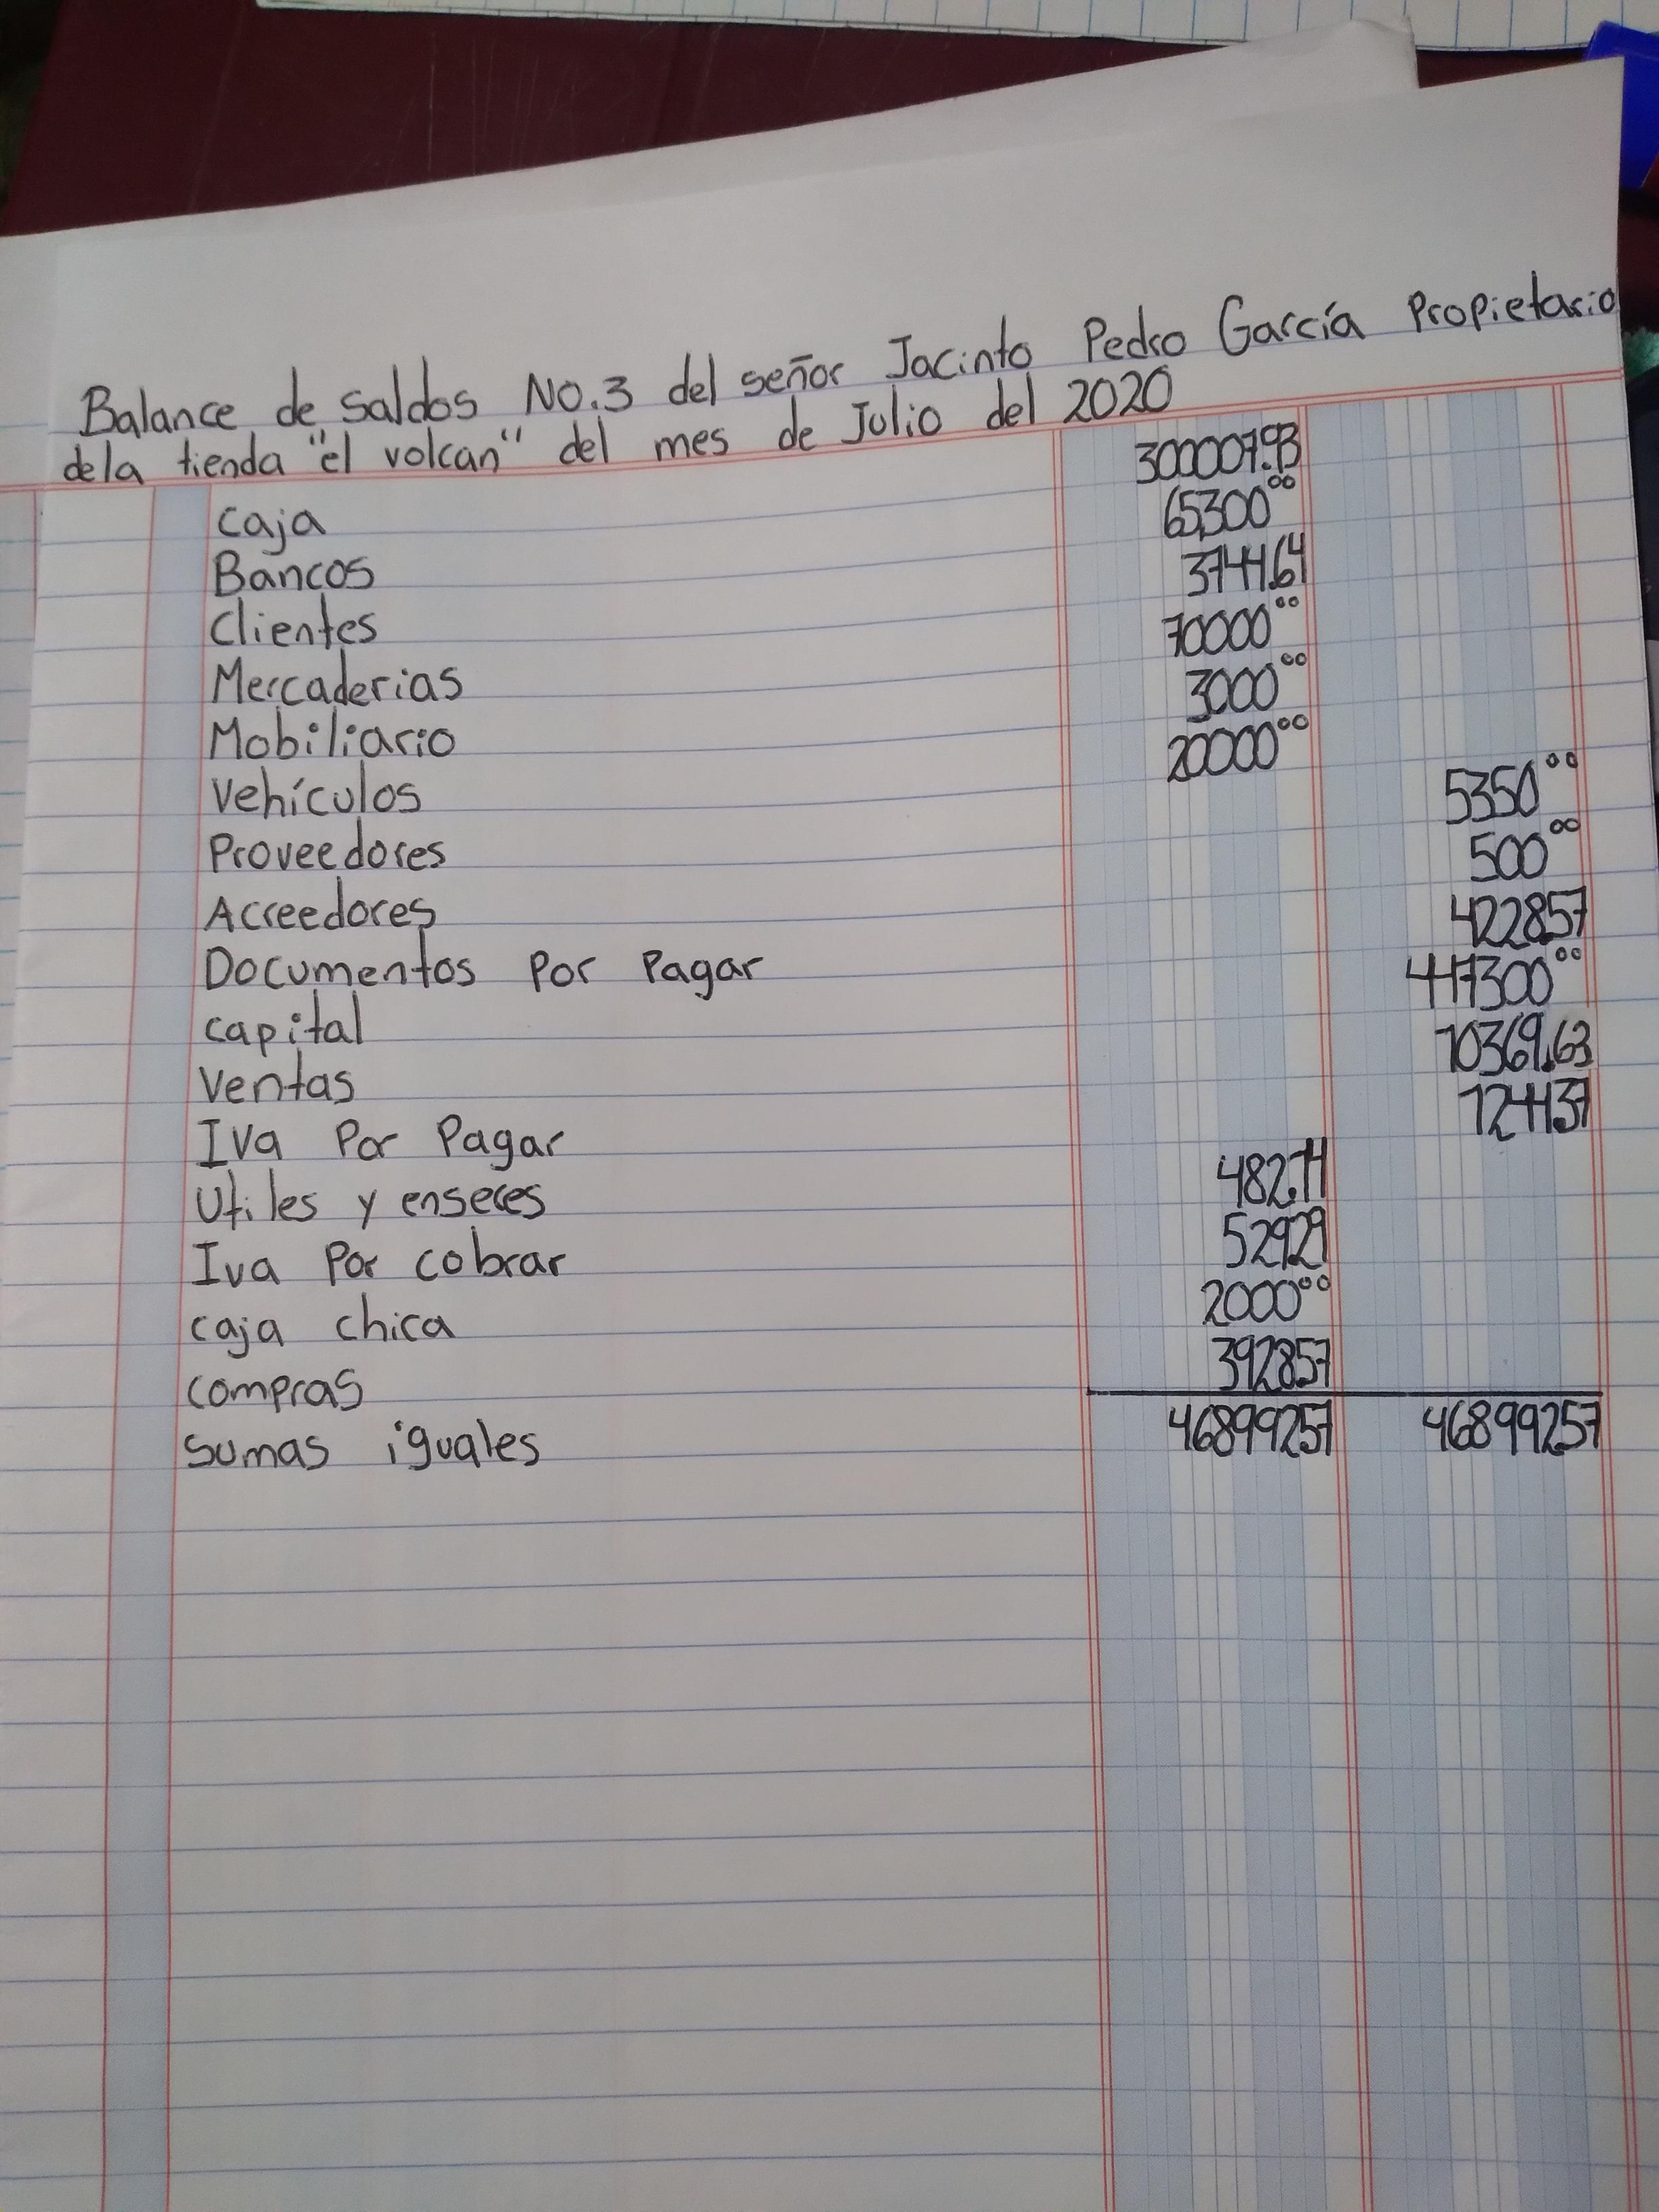 Balance de saldos No.3 del señor Jacinto Pedro García Propietario
dela tienda "el volcan" del mes de Julio del 2020
caja 300007.93
Bancos 65300°°
Clientes 3744.64
Mercaderias 70000°°
Mobiliario 3000°°
Vehículos 20000°°
Proveedores 5350°°
Acreedores 500°°
Documentos Por Pagar 4228.57
capital 447300°°
Ventas 10369.63
Iva Por Pagar 1244.37
Utiles y enseres 482.14
Iva Por cobrar 529.29
caja chica 2000°°
compras 3928.57
sumas iguales 468992.57 468992.57